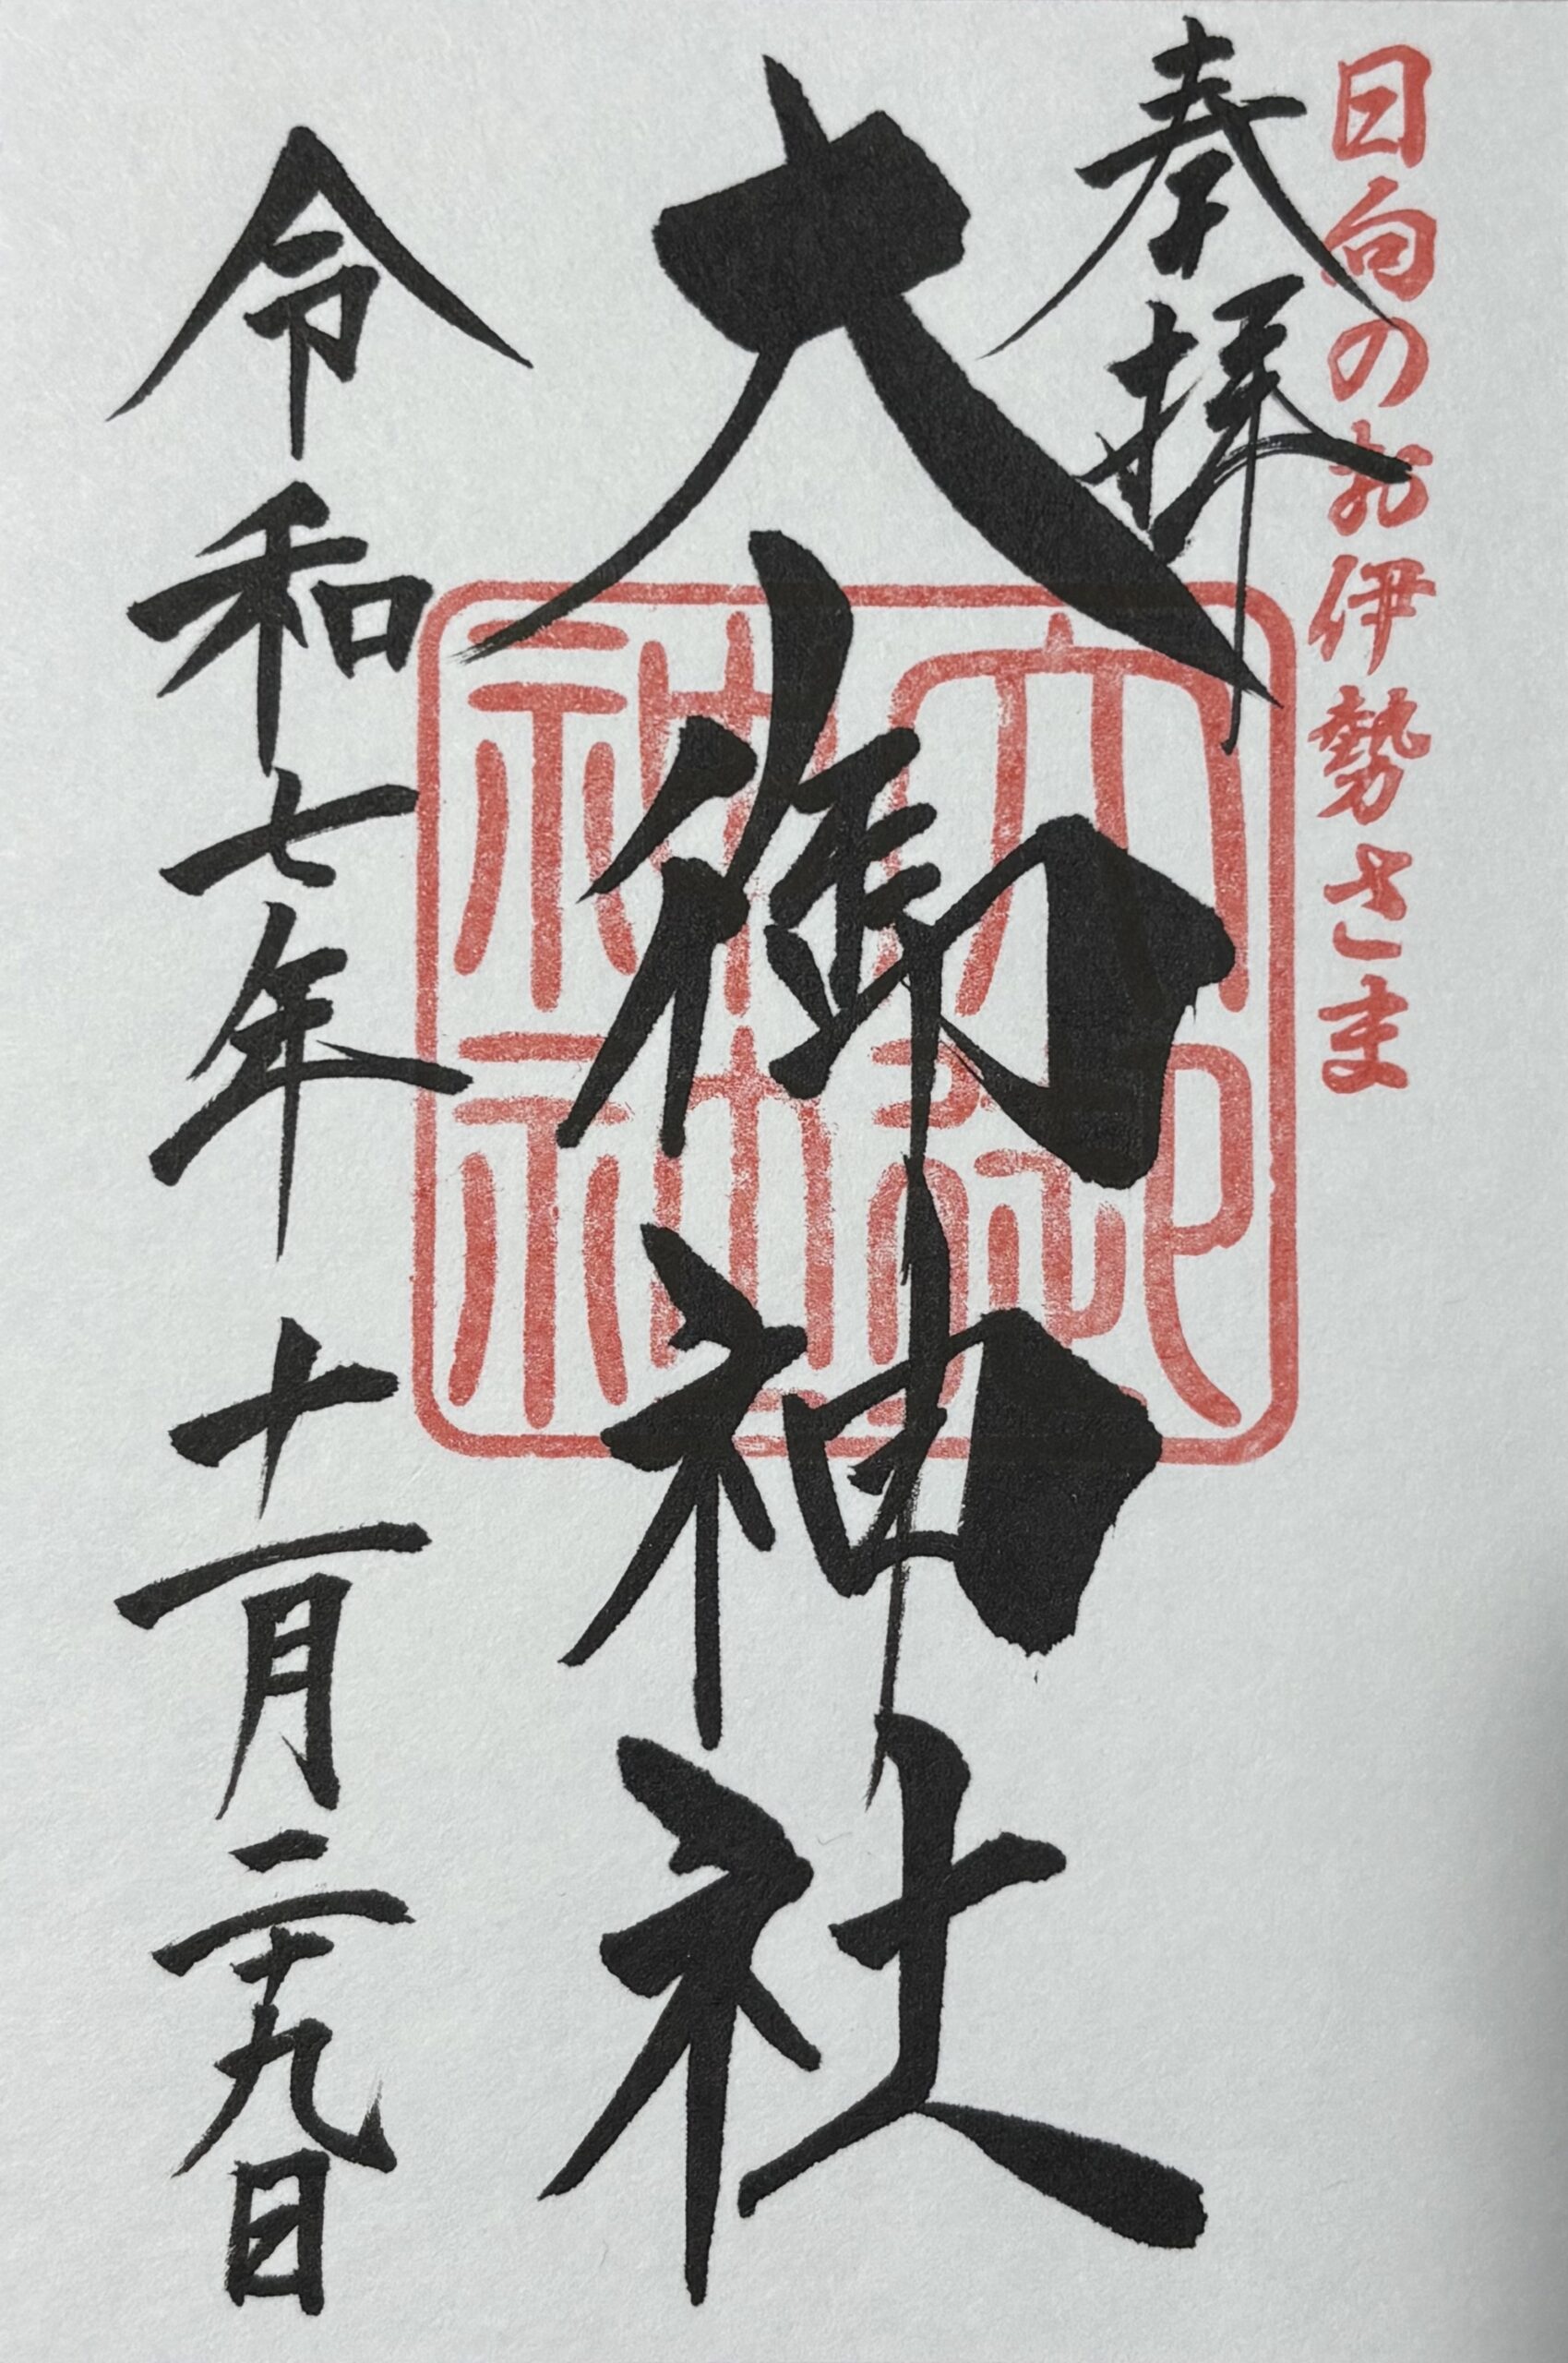 日向のお伊勢さま
奉拝
大御神社
令和七年十一月二十九日